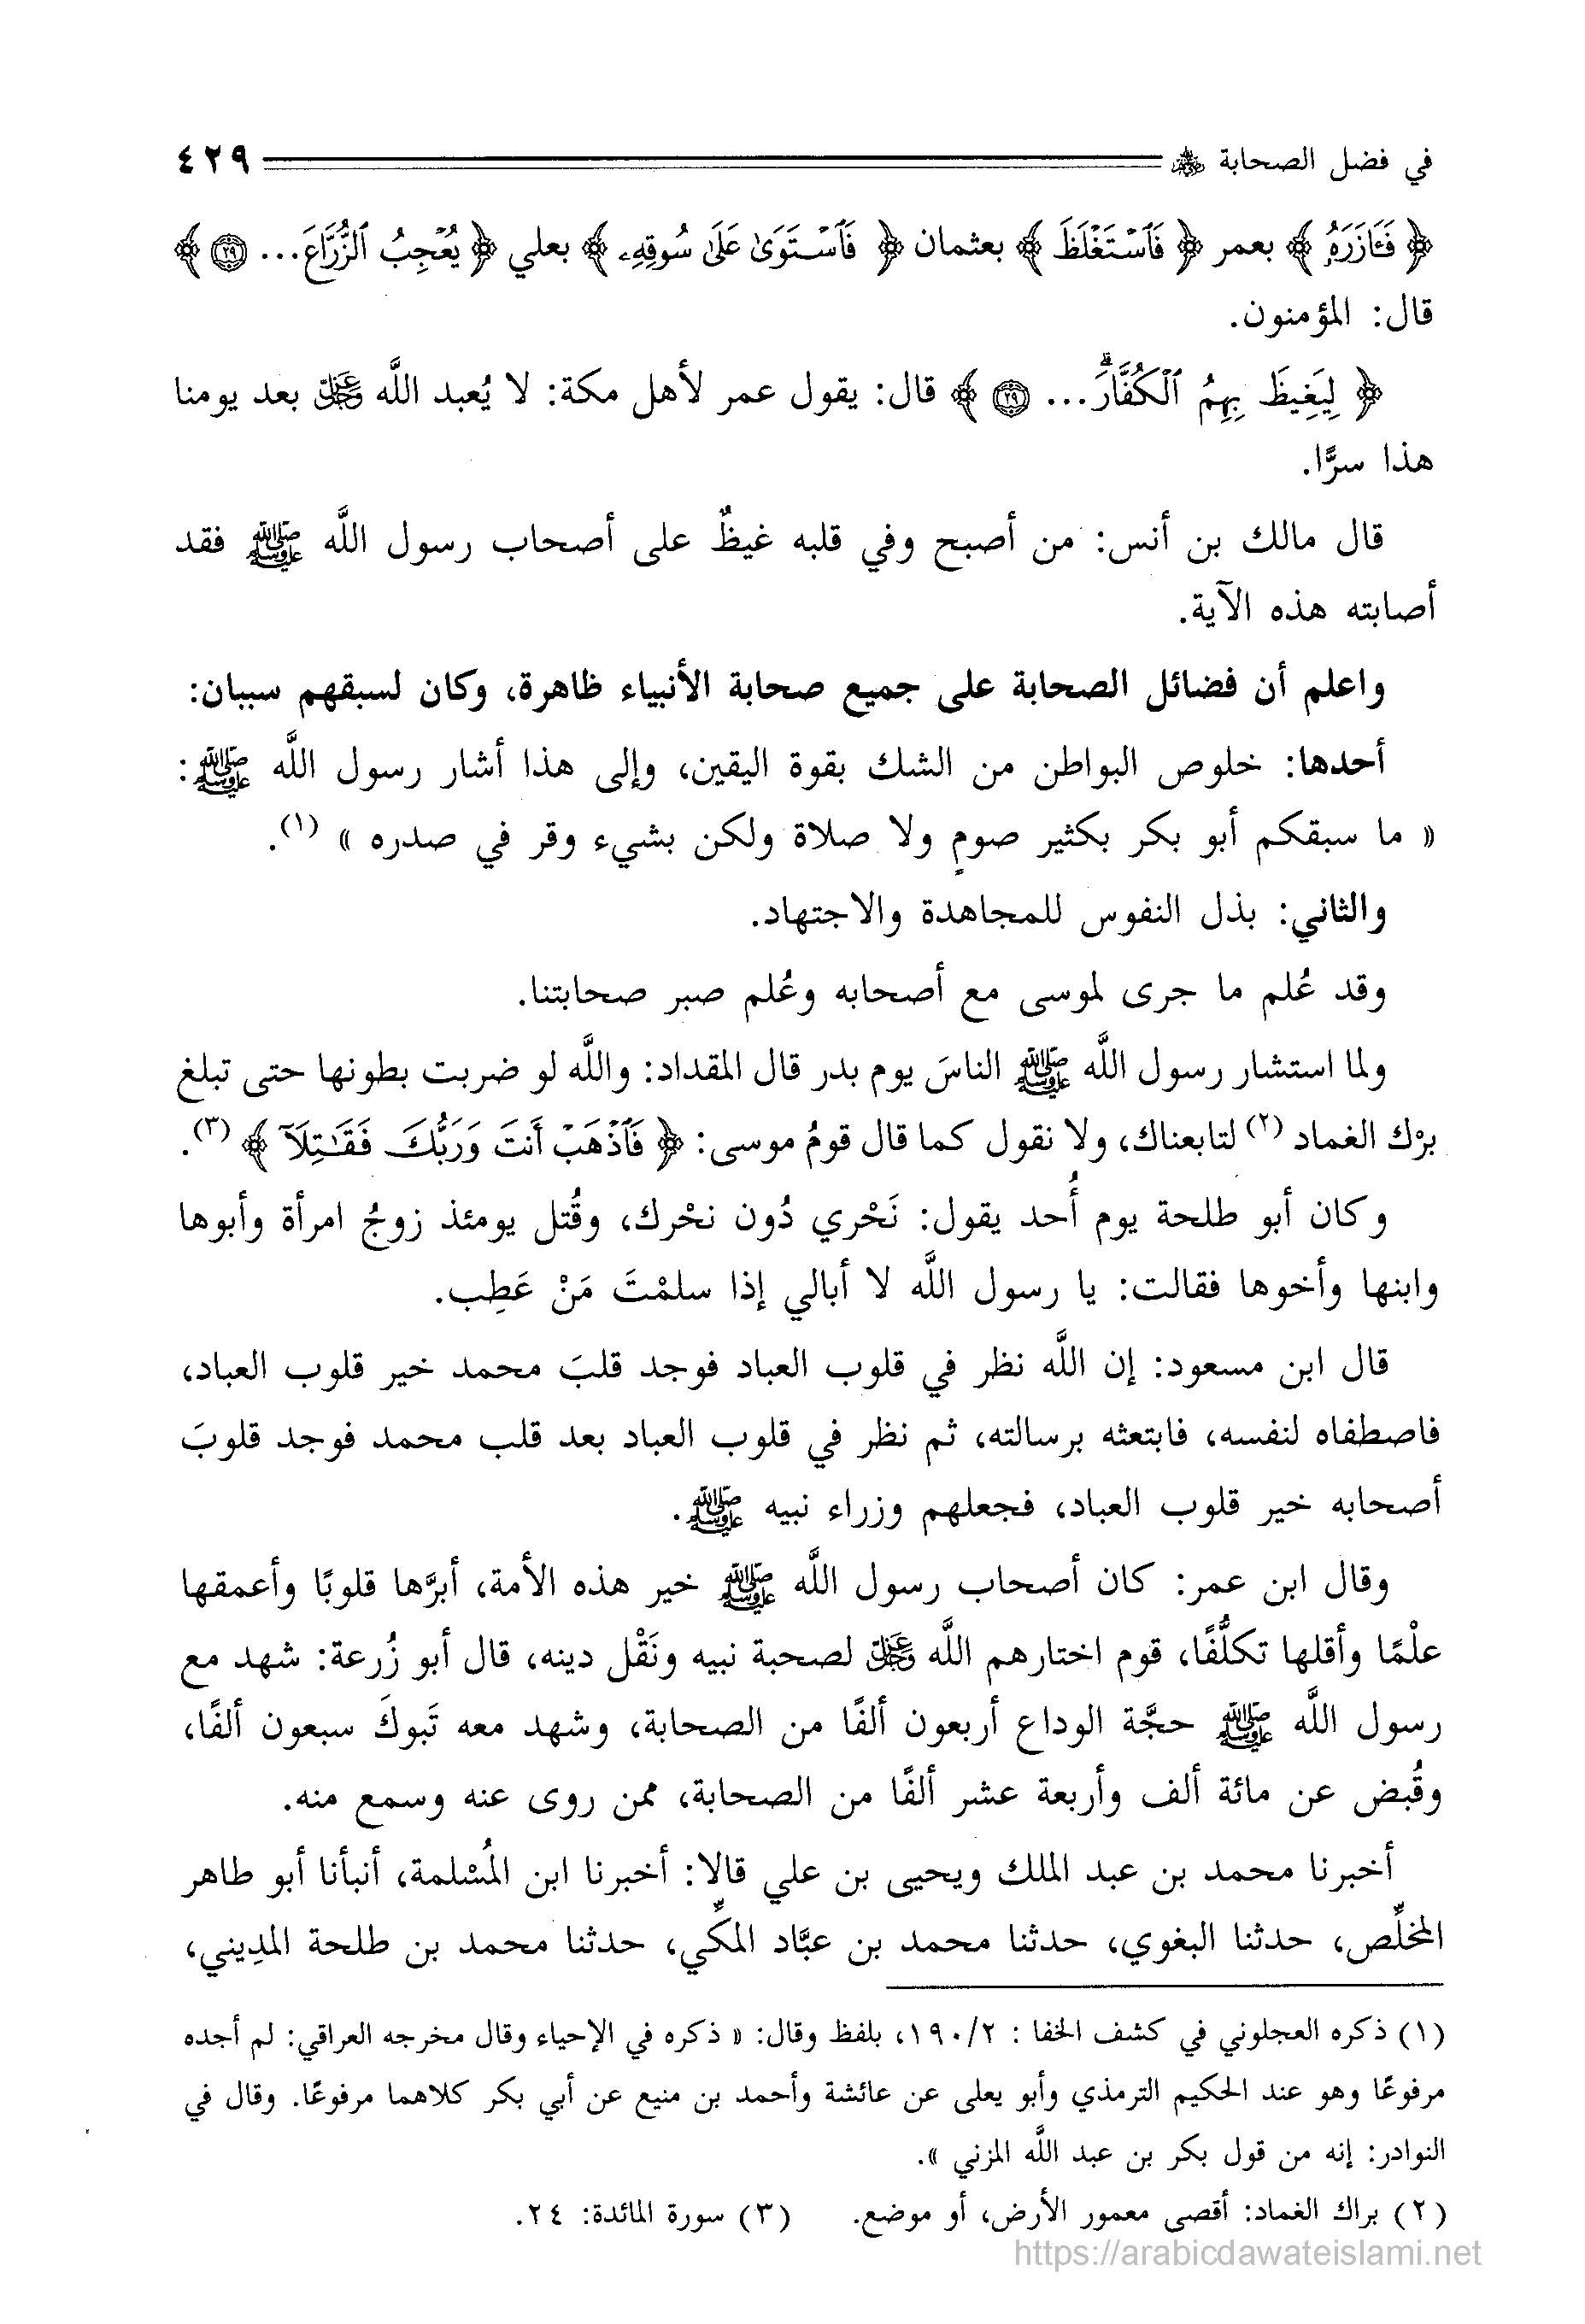 في فضل الصحابة ﷺ ٤٢٩
﴿ فَـَٔازَرَهُۥ ﴾ بعمر ﴿ فَٱسْتَغْلَظَ ﴾ بعثمان ﴿ فَٱسْتَوَىٰ عَلَىٰ سُوقِهِۦ ﴾ بعلي ﴿ يُعْجِبُ ٱلزُّرَّاعَ... ٢٩ ﴾
قال: المؤمنون.
﴿ لِيَغِيظَ بِهِمُ ٱلْكُفَّارَۗ... ٢٩ ﴾ قال: يقول عمر لأهل مكة: لا يُعبد اللَّه عَزَّ وَجَلَّ بعد يومنا
هذا سرًّا.
قال مالك بن أنس: من أصبح وفي قلبه غيظٌ على أصحاب رسول اللَّه ﷺ فقد
أصابته هذه الآية.
واعلم أن فضائل الصحابة على جميع صحابة الأنبياء ظاهرة، وكان لسبقهم سببان:
أحدها: خلوص البواطن من الشك بقوة اليقين، وإلى هذا أشار رسول اللَّه ﷺ:
« ما سبقكم أبو بكر بكثير صومٍ ولا صلاة ولكن بشيء وقر في صدره » (١).
والثاني: بذل النفوس للمجاهدة والاجتهاد.
وقد عُلم ما جرى لموسى مع أصحابه وعُلم صبر صحابتنا.
ولما استشار رسول اللَّه ﷺ الناسَ يوم بدر قال المقداد: واللَّه لو ضربت بطونها حتى تبلغ
برْك الغماد (٢) لتابعناك، ولا نقول كما قال قومُ موسى: ﴿ فَٱذْهَبْ أَنتَ وَرَبُّكَ فَقَٰتِلَآ ﴾ (٣).
وكان أبو طلحة يوم أُحد يقول: نَحْري دُون نحْرك، وقُتل يومئذ زوجُ امرأة وأبوها
وابنها وأخوها فقالت: يا رسول اللَّه لا أبالي إذا سلمْتَ مَنْ عَطِب.
قال ابن مسعود: إن اللَّه نظر في قلوب العباد فوجد قلبَ محمد خير قلوب العباد،
فاصطفاه لنفسه، فابتعثه برسالته، ثم نظر في قلوب العباد بعد قلب محمد فوجد قلوبَ
أصحابه خير قلوب العباد، فجعلهم وزراء نبيه ﷺ.
وقال ابن عمر: كان أصحاب رسول اللَّه ﷺ خير هذه الأمة، أبرَّها قلوبًا وأعمقها
علْمًا وأقلها تكلُّفًا، قوم اختارهم اللَّه عَزَّ وَجَلَّ لصحبة نبيه ونَقْل دينه، قال أبو زُرعة: شهد مع
رسول اللَّه ﷺ حجَّة الوداع أربعون ألفًا من الصحابة، وشهد معه تَبوكَ سبعون ألفًا،
وقُبض عن مائة ألف وأربعة عشر ألفًا من الصحابة، ممن روى عنه وسمع منه.
أخبرنا محمد بن عبد الملك ويحيى بن علي قالا: أخبرنا ابن المُسْلمة، أنبأنا أبو طاهر
المخلِّص، حدثنا البغوي، حدثنا محمد بن عبَّاد المكِّي، حدثنا محمد بن طلحة المدِيني،
(١) ذكره العجلوني في كشف الخفا : ١٩٠/٢، بلفظ وقال: « ذكره في الإحياء وقال مخرجه العراقي: لم أجده
مرفوعًا وهو عند الحكيم الترمذي وأبو يعلى عن عائشة وأحمد بن منيع عن أبي بكر كلاهما مرفوعًا. وقال في
النوادر: إنه من قول بكر بن عبد اللَّه المزني ».
(٢) براك الغماد: أقصى معمور الأرض، أو موضع. (٣) سورة المائدة: ٢٤.
https://arabicdawateislami.net